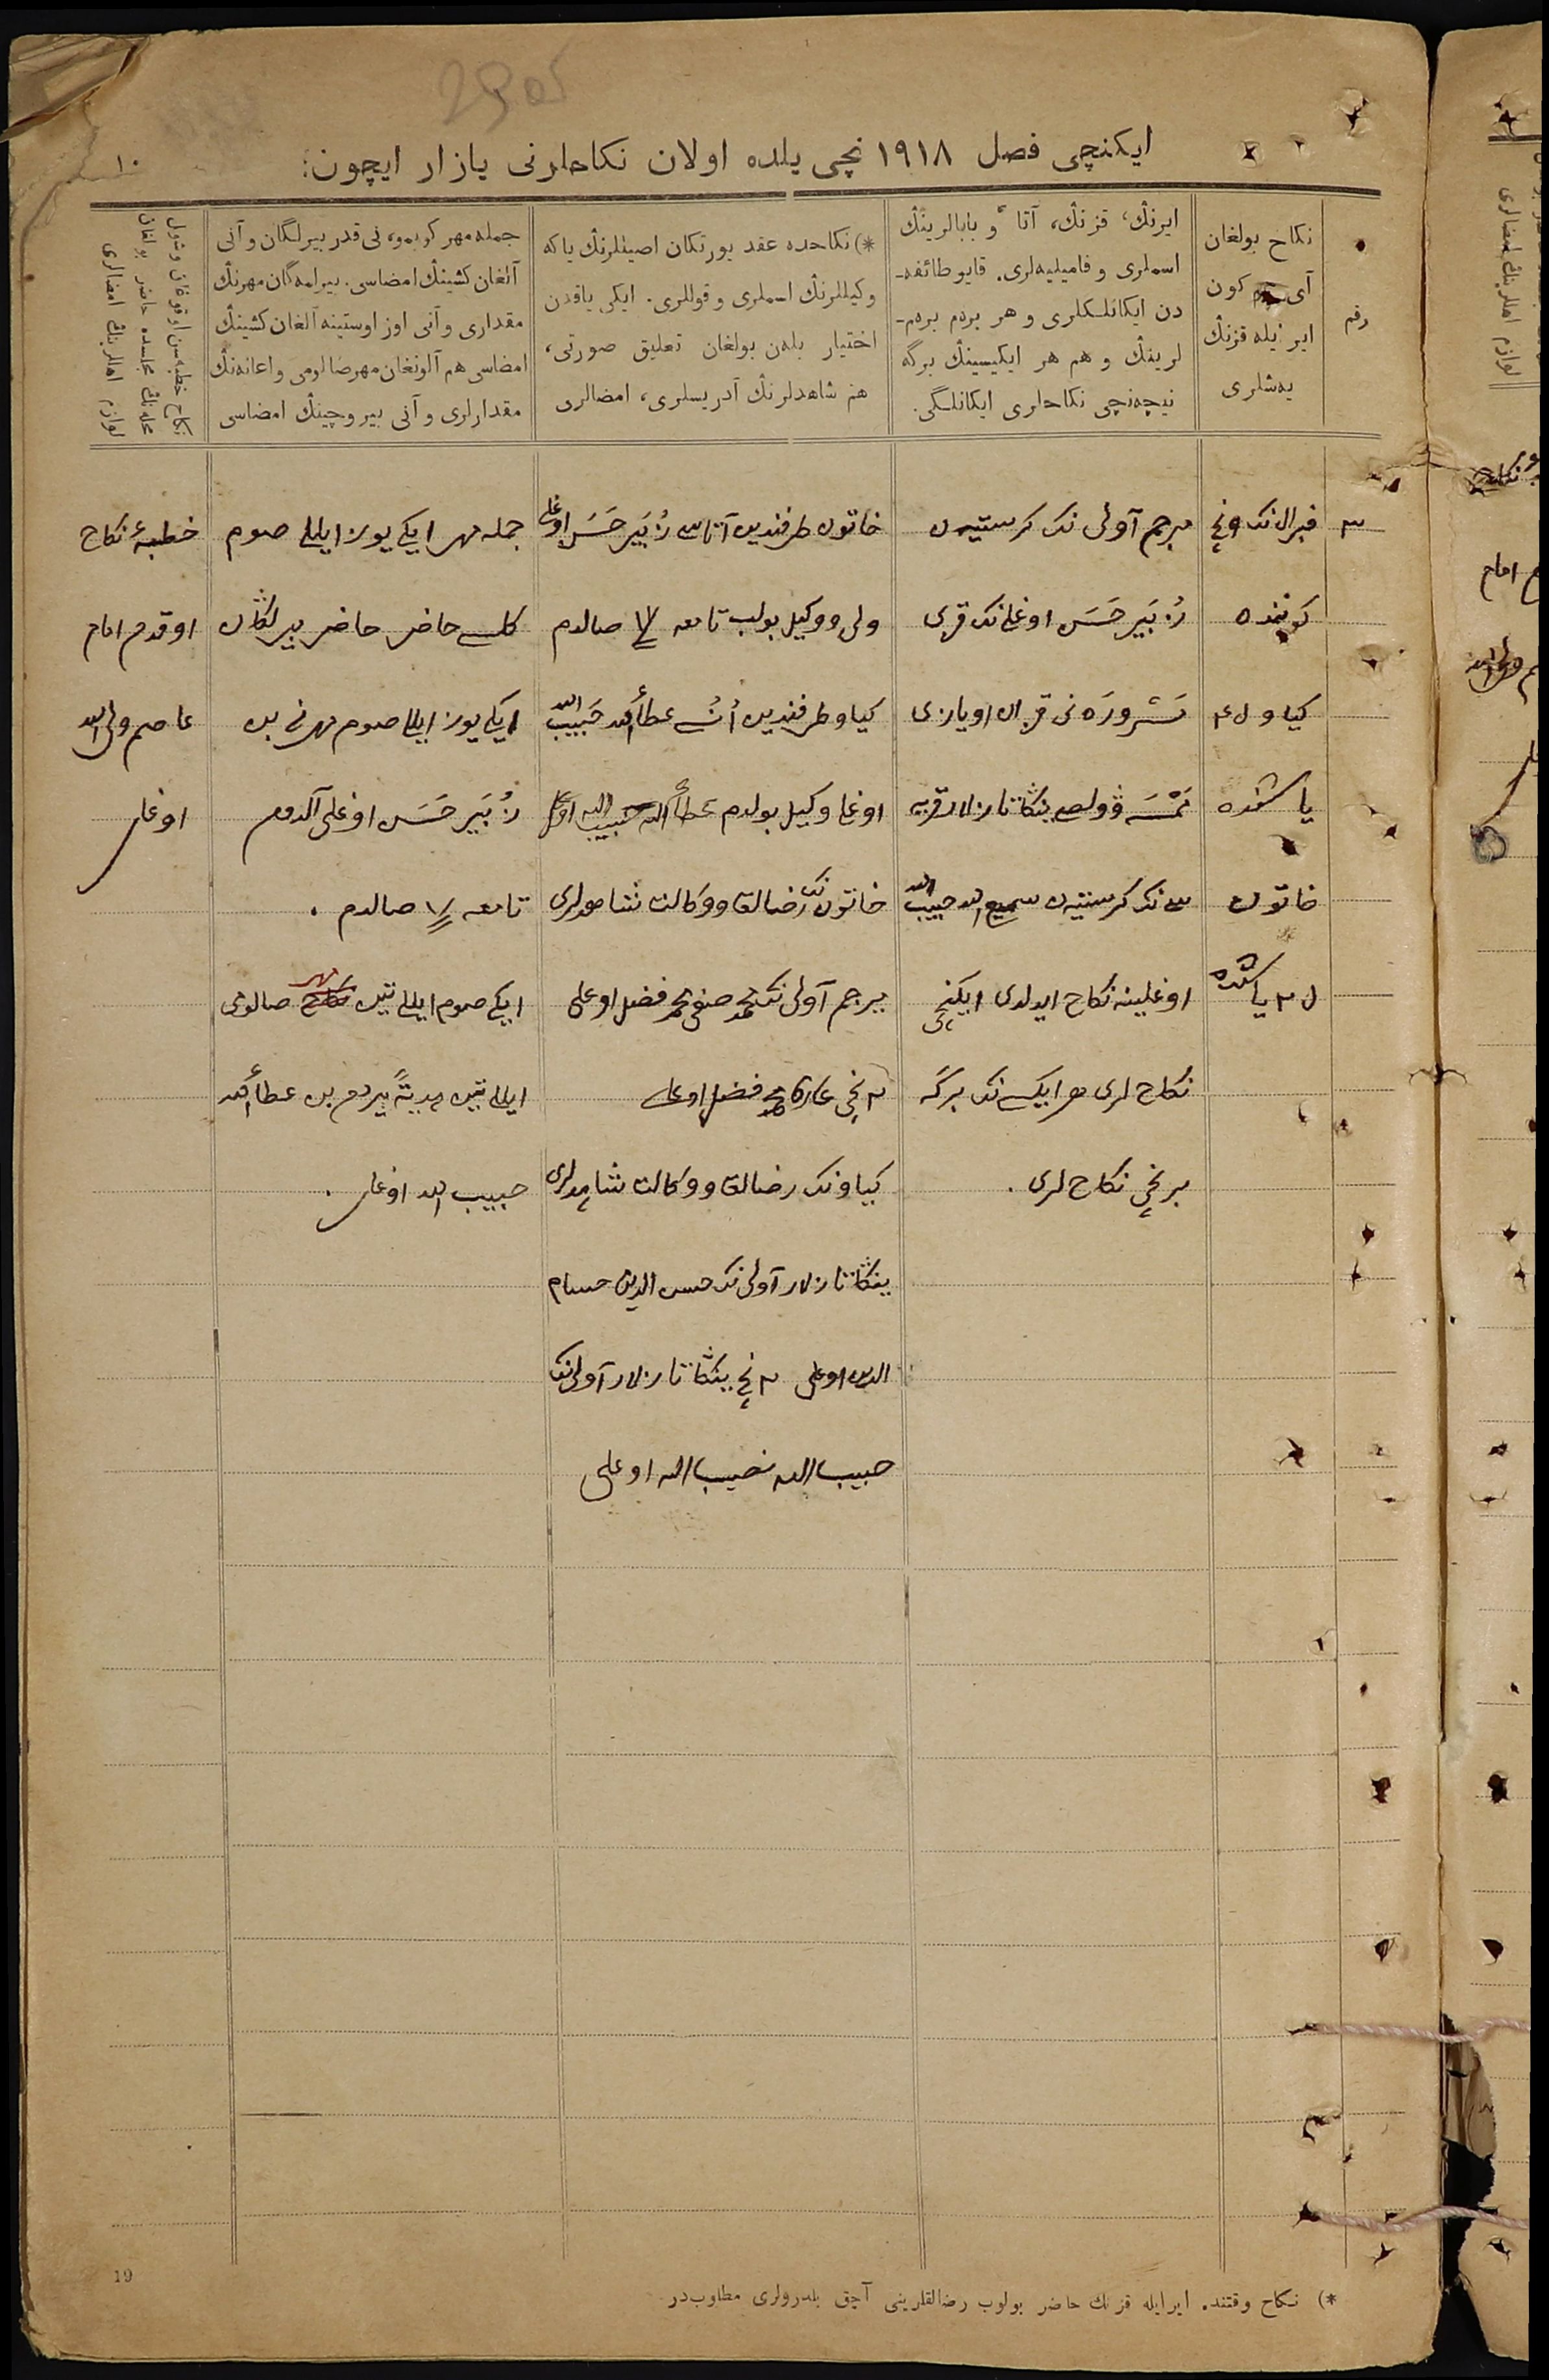 2905
ایکنچی فصل ۱۹۱۸ نچی یلده اولان نکاحلرنی یازار ایچون:
۱۰
رقم
نکاح بولغان
آی کون
ایر نیله قزنڭ
یه‌شلری
ایرنڭ، قزنڭ، آتا و بابالرینڭ
اسملری و فامیلیه‌لری. قایو طائفه-
دن ایکانلکلری و هر بردم بردم-
لرینڭ و هم هر ایکیسینڭ برگه
نیچه‌نچی نکاحلری ایکانلگی.
*) نکاحده عقد یورتکان اصیللرنڭ یاکه
وکیللرنڭ اسملری و قوللری. ایکی یاقدن
اختیار بله‌ن بولغان تعلیق صورتی،
هم شاهدلرنڭ آدریسلری، امضالری
جمله مهر کوبمو، نی قدر بیرلگان و آنی
آلغان کشینڭ امضاسی. بیرلمه‌گان مهرنڭ
مقداری و آنی اوز اوستینه آلغان کشینڭ
امضاسی هم آلونغان مهرصالومی و اعانه‌نڭ
مقدارلری و آنی بیروچینڭ امضاسی
نکاح خطبه‌سن اوقوغان وشول
محله‌نڭ مجلسده حاضر بولغان
لوازم اهللرینڭ امضالری
۳
فبرال نک ۹نچی
کوننده
کیاو
یاشنده
خاتون
یاشنده
بیرجم آولی نک کرستیان
زُبَیر حَسَن اوغلی نک قزی
مَسْرورَه نی قزان اویازی
ینکا تازلار قریه
سی نک کرستیان سمیع الله حبیب الله
اوغلینه نکاح ایدلدی ایکنچی
نکاح لری هر ایکیسی نک برگه
برنچی نکاح لری .
خاتون طرفندین آتاسی زُبَیر حَسَن اوغلی
ولی و وکیل بولب تامغه صالدم
کیاو طرفندین عطاء الله حَبیب الله
اوغلی وکیل بولدم عطاء الله حبیب الله اوغلی
خاتون نک رضالق و وکالت شاهدلری
بیرجم آولی نک محمد صفی محمد فضل اوغلی
۲ نچی محمد فضل اوغلی
کیاو نک رضالق و وکالت شاهدلری
ینکا تازلار آولی نک حسن الدین حسام
الدین اوغلی ۲ نچی ینکا تازلار آولی نک
حبیب الله نصیب الله اوغلی
جمله مهر ایکی یوز ایللی صوم
کلیسی حاضر حاضر بیرلکان
ایکی یوز ایللی صوم مهرنی بن
زُبَیر حَسَن اوغلی آلدوم
تامغه صالدم .
ایکی صوم ایللی تین مهر صالومی
ایللی تین هدیةً بیردم بن عطاء الله
حبیب الله اوغلی .
خطبهٔ نکاح
اوقدم امام
عاصم ولی الله
اوغلی
*) نکاح وقتنده ایرایله قزنك حاضر بولوب رضالقلرینی آچق بلدرولری مطلوب‌در
19